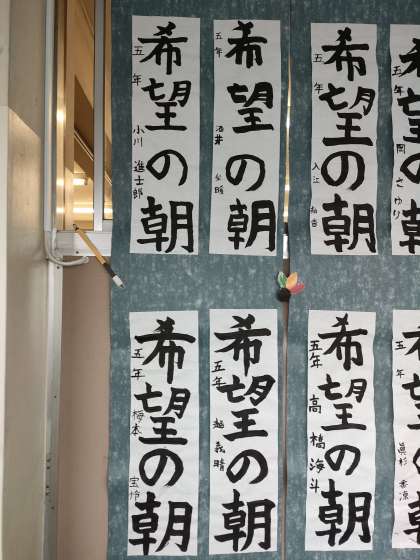 希望の朝
五年 岡 さゆり
希望の朝
五年 入江
希望の朝
五年
希望の朝
五年 小川 進士郎
希望の朝
五年
希望の朝
五年 高橋 海斗
希望の朝
五年 越 義晴
希望の朝
五年 梅本